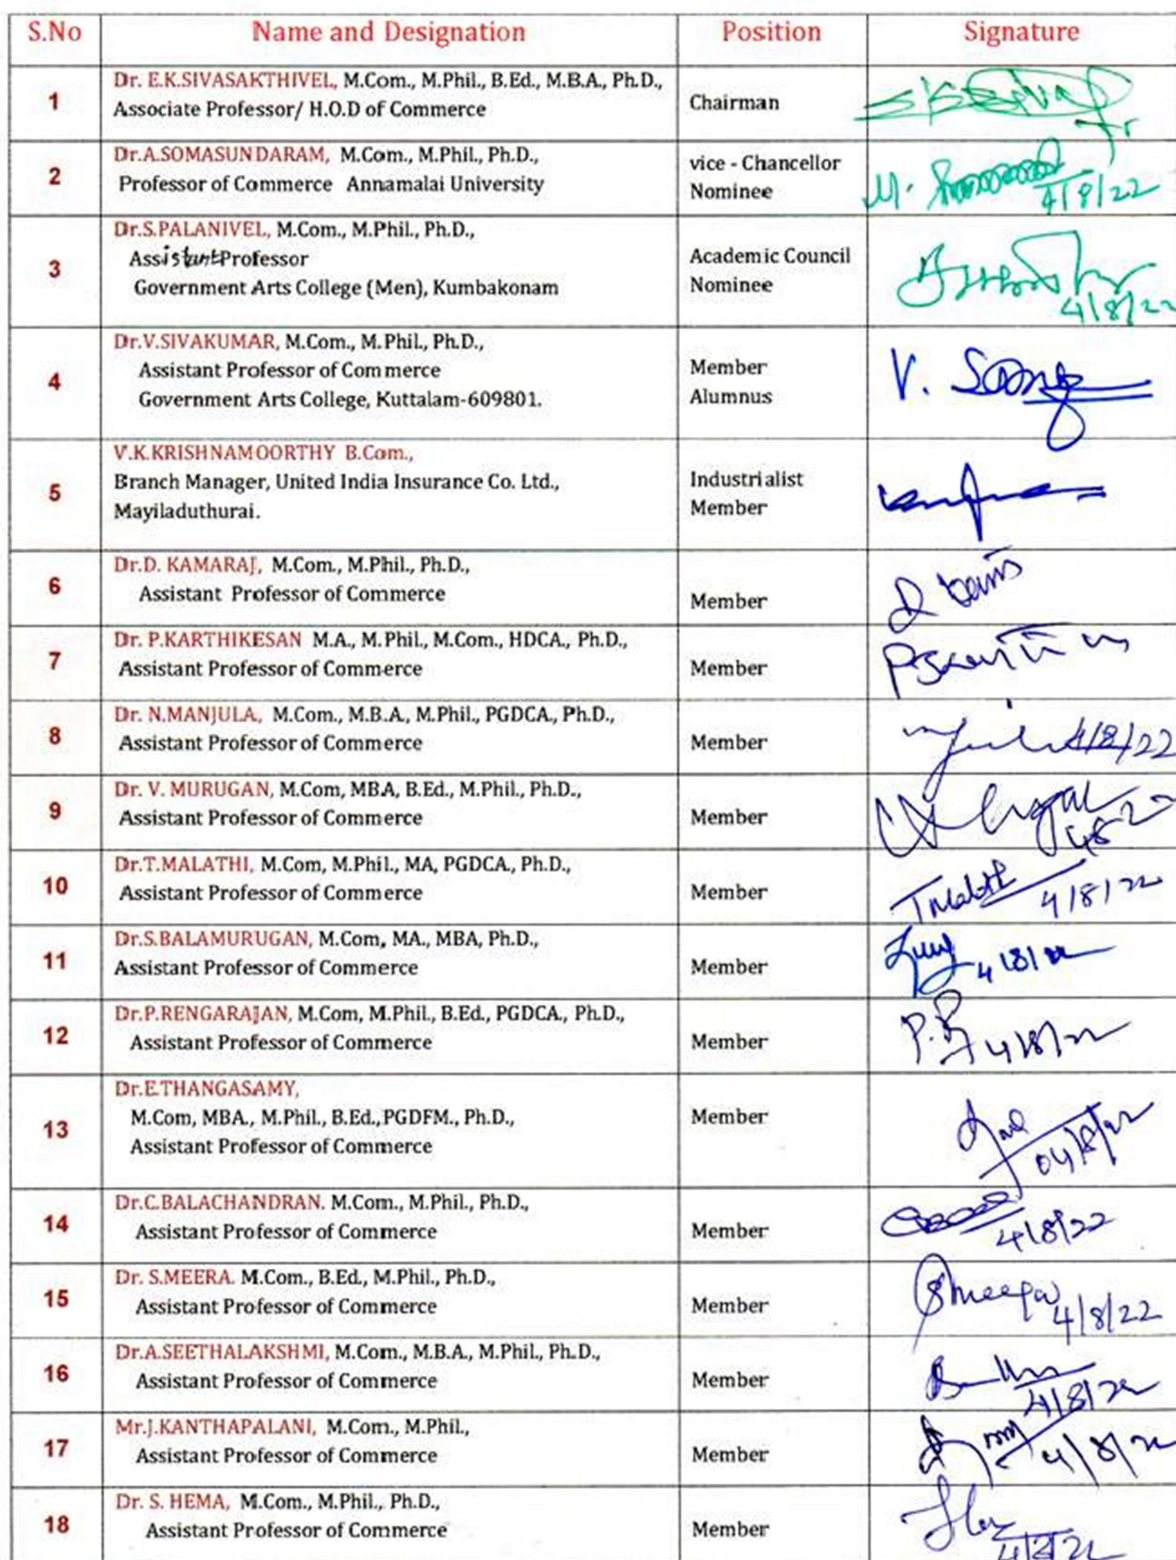 S.No Name and Designation Position Signature
1 Dr. E.K.SIVASAKTHIVEL, M.Com., M.Phil., B.Ed., M.B.A., Ph.D.,
Associate Professor/ H.O.D of Commerce
Chairman
2 Dr.A.SOMASUNDARAM, M.Com., M.Phil., Ph.D.,
Professor of Commerce Annamalai University
vice - Chancellor
Nominee
4/8/22
3 Dr.S.PALANIVEL, M.Com., M.Phil., Ph.D.,
Assistant Professor
Government Arts College (Men), Kumbakonam
Academic Council
Nominee
4/8/22
4 Dr.V.SIVAKUMAR, M.Com., M.Phil., Ph.D.,
Assistant Professor of Commerce
Government Arts College, Kuttalam-609801.
Member
Alumnus
V.
5 V.K.KRISHNAMOORTHY B.Com.,
Branch Manager, United India Insurance Co. Ltd.,
Mayiladuthurai.
Industrialist
Member
6 Dr.D. KAMARAJ, M.Com., M.Phil., Ph.D.,
Assistant Professor of Commerce
Member
7 Dr. P.KARTHIKESAN M.A., M.Phil., M.Com., HDCA., Ph.D.,
Assistant Professor of Commerce
Member
8 Dr. N.MANJULA, M.Com., M.B.A., M.Phil., PGDCA., Ph.D.,
Assistant Professor of Commerce
Member
4/8/22
9 Dr. V. MURUGAN, M.Com, MBA, B.Ed., M.Phil., Ph.D.,
Assistant Professor of Commerce
Member
10 Dr.T.MALATHI, M.Com, M.Phil., MA, PGDCA., Ph.D.,
Assistant Professor of Commerce
Member
4/8/22
11 Dr.S.BALAMURUGAN, M.Com, MA., MBA, Ph.D.,
Assistant Professor of Commerce
Member
4/8/22
12 Dr.P.RENGARAJAN, M.Com, M.Phil., B.Ed., PGDCA., Ph.D.,
Assistant Professor of Commerce
Member
4/8/22
13 Dr.E.THANGASAMY,
M.Com, MBA., M.Phil., B.Ed.,PGDFM., Ph.D.,
Assistant Professor of Commerce
Member
04/8/22
14 Dr.C.BALACHANDRAN. M.Com., M.Phil., Ph.D.,
Assistant Professor of Commerce
Member
4/8/22
15 Dr. S.MEERA. M.Com., B.Ed., M.Phil., Ph.D.,
Assistant Professor of Commerce
Member
4/8/22
16 Dr.A.SEETHALAKSHMI, M.Com., M.B.A., M.Phil., Ph.D.,
Assistant Professor of Commerce
Member
4/8/22
17 Mr.J.KANTHAPALANI, M.Com., M.Phil.,
Assistant Professor of Commerce
Member
4/8/22
18 Dr. S. HEMA, M.Com., M.Phil., Ph.D.,
Assistant Professor of Commerce
Member